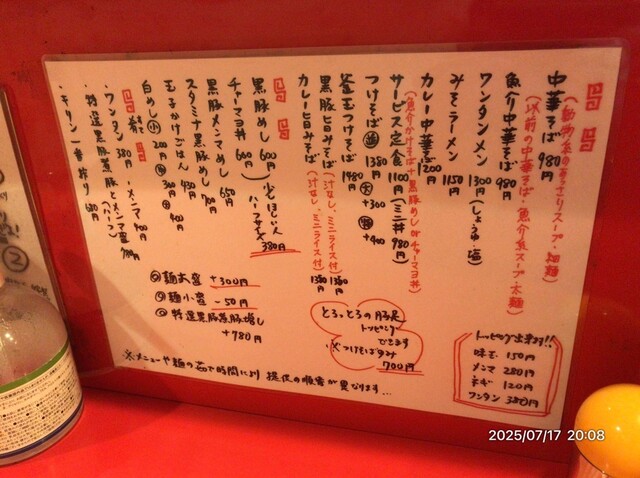 中華そば 980円
(動物系のあっさりスープ・細麺)
(以前の中華そば・魚介系スープ・太麺)
魚介中華そば 980円
ワンタンメン 1300円(しょうゆ・塩)
みそラーメン 1150円
カレー中華そば 1200円
(魚介かけそば+黒豚めしorチャーマヨ丼)
サービス定食 1100円(ミニ丼 980円)
つけそば 並 1380円 大 +300 特 +400
釜玉つけそば 1480円
黒豚旨みそば(汁なし、ミニライス付) 1380円
カレー旨みそば(汁なし、ミニライス付) 1380円
黒豚めし 600円
チャーマヨ丼 600円
少なくほしい人 ハーフサイズ 380円
黒豚メンマめし 650円
スタミナ黒豚めし 700円
玉子かけごはん 430円
白めし 小 200円 中 300円 大 400円
・ワンタン 380円 ・メンマ 400円
・特選黒豚煮豚とメンマ盛(ハーフ)
・キリン一番搾り 680円
麺大盛 +300円
麺小盛 -50円
特選黒豚煮豚増し +780円
とろっとろの豚足
トッピング
できます
※つけそばのみ
700円
トッピング出来ます!!
味玉 150円
メンマ 280円
ネギ 120円
ワンタン 380円
※メニューや麺の茹で時間により 提供の順番が異なります…
2
2025/07/17 20:08